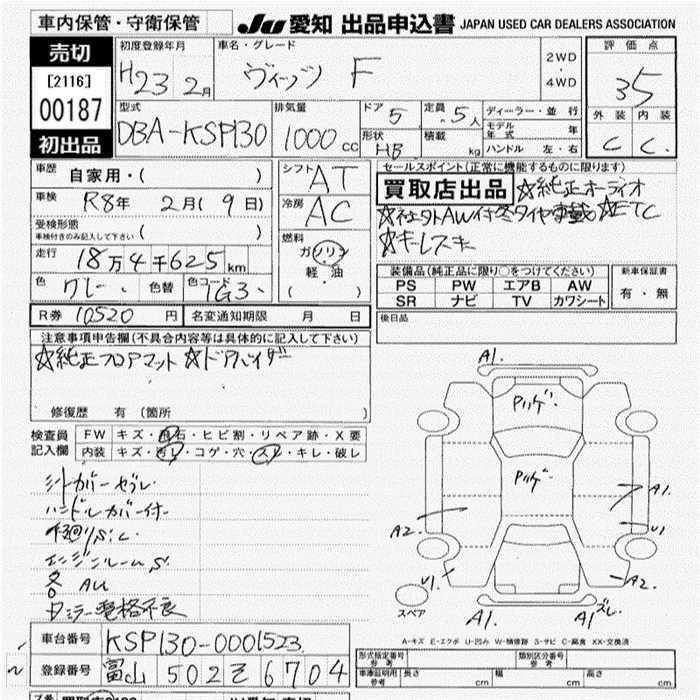 車内保管・守衛保管
JU 愛知 出品申込書 JAPAN USED CAR DEALERS ASSOCIATION
売切
[2116]
00187
初出品
初度登録年月 H23 2月
車名・グレード ヴィッツ F
2WD・4WD
評価点 3.5
外装 内装
C C
型式 DBA-KSP130
排気量 1000cc
ドア 5 定員 5人
形状 HB 積載 kg
ディーラー・並行
モデル年式 年
ハンドル 左・右
車歴 自家用・( )
車検 R8年 2月(9日)
受検形態
車検付きのみ記入して下さい ( )
走行 18万4千625km
色 グレー 色替 色コード 1G3
シフト AT
冷房 AC
燃料
ガソリン
軽油
( )
セールスポイント(正常に機能するものに限ります)
買取店出品 ☆純正オーディオ
☆社外AW付冬タイヤ車載 ☆ETC
☆キーレスキー
装備品(純正品に限り○をつけてください)
PS PW エアB AW
SR ナビ TV カワシート
新車保証書
有・無
R券 10520円 名変通知期限 月 日
後日品
注意事項申告欄(不具合内容等は具体的に記入して下さい)
☆純正フロアマット ☆ドアバイザー
修復歴 有(箇所 )
検査員記入欄
FW キズ・飛石・ヒビ割・リペア跡・X要
内装 キズ・汚レ・コゲ・穴・スレ・キレ・破レ
シートカバー
ハンドルカバー付
下廻りS.C
エンジンルームS
各AU
ミラー電格不良
A1.
A2
V1.
A1.
A1.
V1
A2
A1 ズレ.
スペア
A-キズ E-エクボ U-凹み W-補修跡 S-サビ C-腐食 XX-交換済
車台番号 KSP130-0001523
登録番号 富山 502 そ 6704
形式指定番号 参考
類別区分番号 参考
車庫証明用 参考 長さ cm 幅 cm 高さ cm